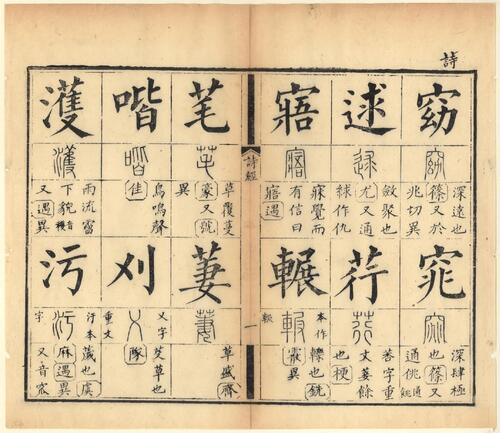 詩
窈
深遠也
篠又於
兆切異
窕
深肆極
也篠又
通佻
逑
斂聚也
尤又通
絿作仇
荇
字重
文萋餘
也梗
寤
寐覺而
有信曰
寤遇
輾
本作
轢也銑
異
詩經
一
芼
草覆蔓
豪又號
異
萋
草盛齊
喈
鳥鳴聲
佳
刈
乂字
芟草也
隊
重文
濩
雨流霤
下貌
又遇異
污
薉也虞
汙本
麻遇異
又音窊
字